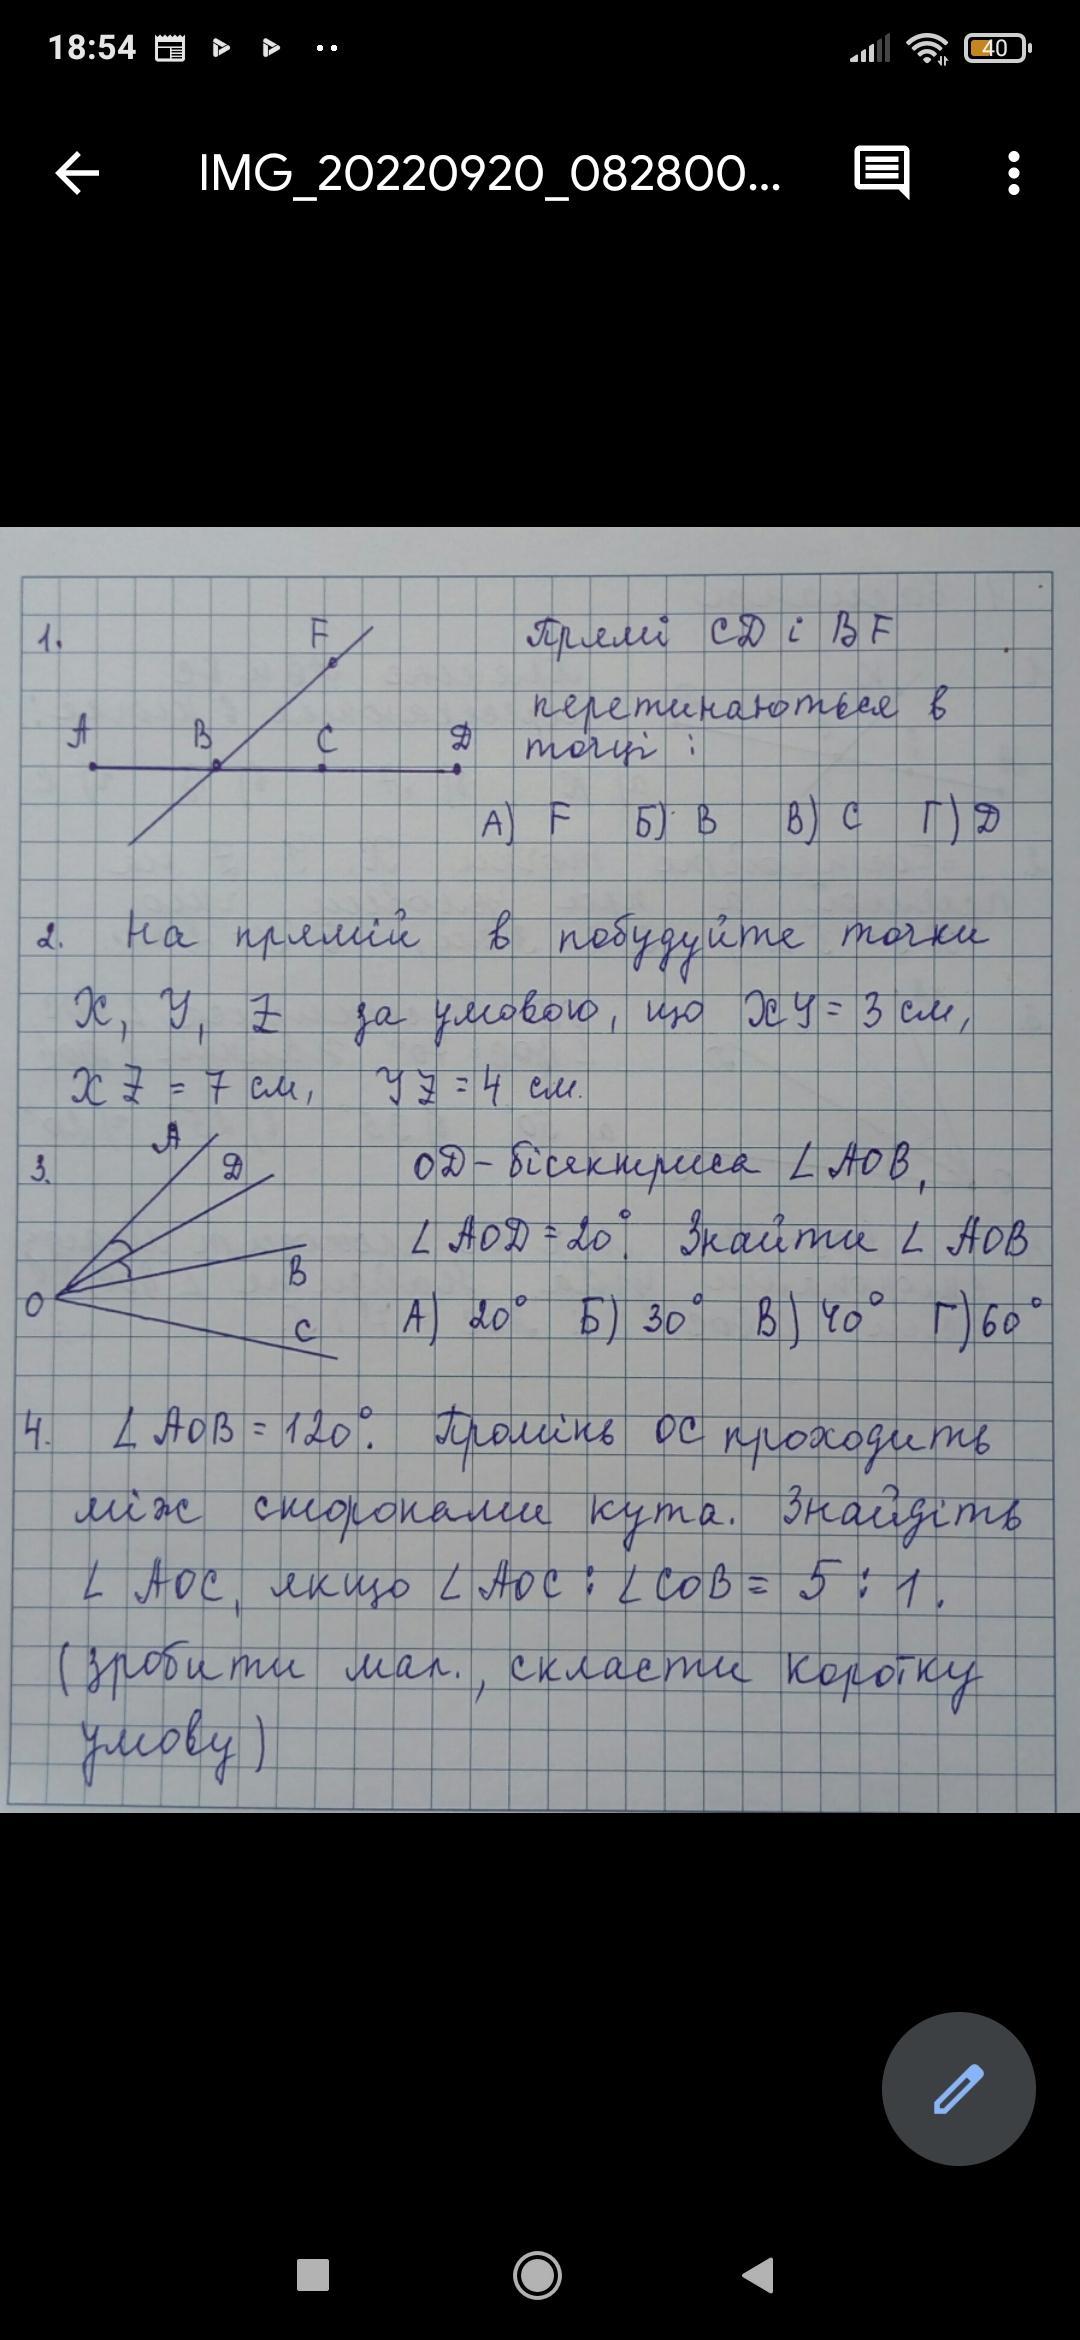 18:54
40
IMG_20220920_082800...
1.
F
A
B
C
D
Прямі CD і BF
перетинаються в
точці :
А) F Б) B В) C Г) D
2. На прямій в побудуйте точки
X, Y, Z за умовою, що XY = 3 см,
XZ = 7 см, YZ = 4 см.
3.
A
D
B
C
O
OD - бісектриса ∠AOB,
∠AOD = 20°. Знайти ∠AOB
А) 20° Б) 30° В) 40° Г) 60°
4. ∠AOB = 120°. Промінь OC проходить
між сторонами кута. Знайдіть
∠AOC, якщо ∠AOC : ∠COB = 5 : 1.
(зробити мал., скласти коротку
умову)